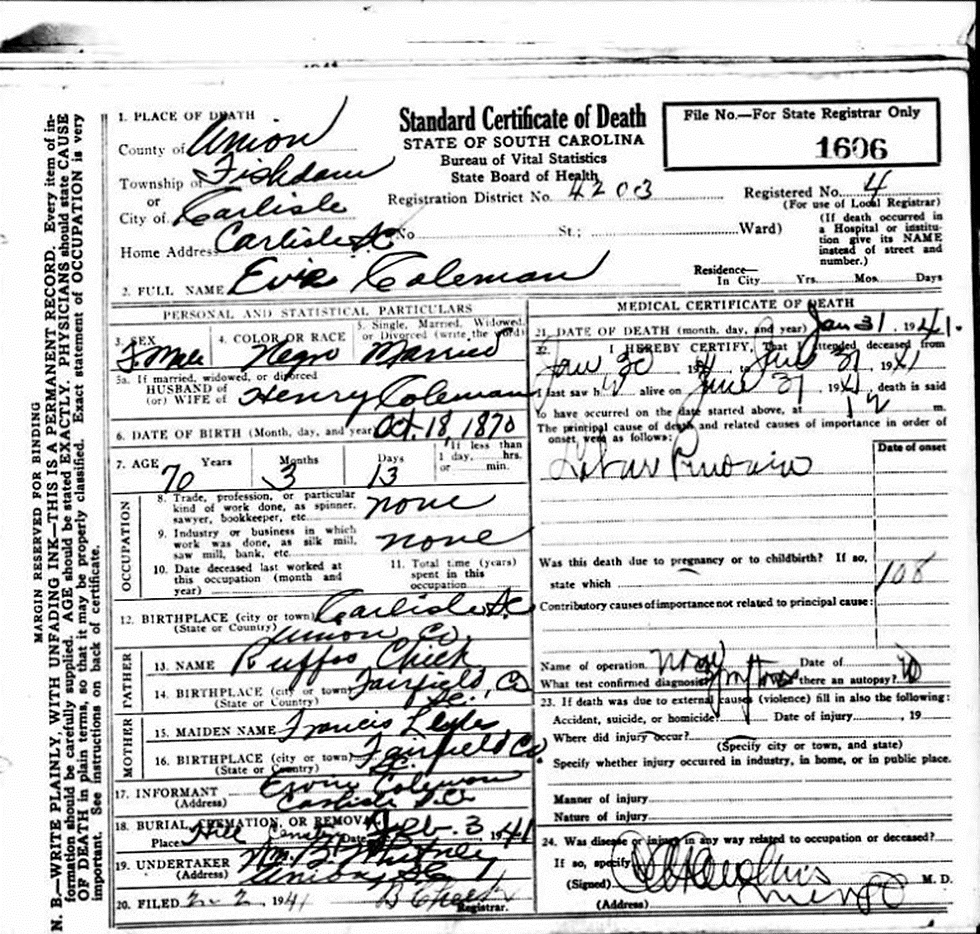 N. B.—WRITE PLAINLY, WITH UNFADING INK—THIS IS A PERMANENT RECORD. Every item of in-
formation should be carefully supplied. AGE should be stated EXACTLY. PHYSICIANS should state CAUSE
OF DEATH in plain terms, so that it may be properly classified. Exact statement of OCCUPATION is very
important. See instructions on back of certificate.
MARGIN RESERVED FOR BINDING
1. PLACE OF DEATH
County of Union
Township of Fishdam
or
City of Carlisle
Home Address Carlisle SC No. St.; Ward)
Standard Certificate of Death
STATE OF SOUTH CAROLINA
Bureau of Vital Statistics
State Board of Health
Registration District No. 4203
File No.—For State Registrar Only
1606
Registered No. 4
(For use of Local Registrar)
(If death occurred in
a Hospital or institu-
tion give its NAME
instead of street and
number.)
2. FULL NAME Evie Coleman
Residence—
In City Yrs. Mos. Days
PERSONAL AND STATISTICAL PARTICULARS
3. SEX 4. COLOR OR RACE 5. Single, Married, Widowed, or Divorced (write the word)
Female Negro Married
5a. If married, widowed, or divorced
HUSBAND of
(or) WIFE of Henry Coleman
6. DATE OF BIRTH (Month, day, and year) Oct. 18, 1870
7. AGE Years Months Days If less than
1 day, hrs.
or min.
70 3 13
OCCUPATION
8. Trade, profession, or particular
kind of work done, as spinner,
sawyer, bookkeeper, etc. none
9. Industry or business in which
work was done, as silk mill,
saw mill, bank, etc. none
10. Date deceased last worked at
this occupation (month and
year)
11. Total time (years)
spent in this
occupation
12. BIRTHPLACE (city or town) Carlisle S.C.
(State or Country) Union Co.
FATHER
13. NAME Ruffos Chick
14. BIRTHPLACE (city or town) Fairfield, Co
(State or Country) S.C.
MOTHER
15. MAIDEN NAME Francis Lyles
16. BIRTHPLACE (city or town) Fairfield Co.
(State or Country) S.C.
17. INFORMANT Coleman
(Address) Carlisle S.C.
18. BURIAL, CREMATION, OR REMOVAL
Place Hill Date Feb. 3 1941
19. UNDERTAKER Wm. B. Whitney
(Address) Union, S.C.
20. FILED 2, 1941 Registrar.
MEDICAL CERTIFICATE OF DEATH
21. DATE OF DEATH (month, day, and year) Jan 31, 1941.
22. I HEREBY CERTIFY, That I attended deceased from
Jan 30 1941 to 31 1941
I last saw h alive on 31 1941, death is said
to have occurred on the date started above, at 12 m.
The principal cause of death and related causes of importance in order of
onset were as follows:
Date of onset
Lobar
Was this death due to pregnancy or to childbirth? If so,
state which
108
Contributory causes of importance not related to principal cause:
Name of operation none Date of
What test confirmed diagnosis? Symptoms there an autopsy? no
23. If death was due to external causes (violence) fill in also the following:
Accident, suicide, or homicide Date of injury , 19
Where did injury occur?
(Specify city or town, and state)
Specify whether injury occurred in industry, in home, or in public place.
Manner of injury
Nature of injury
24. Was disease or injury in any way related to occupation or deceased?
If so, specify
(Signed) M. D.
(Address)